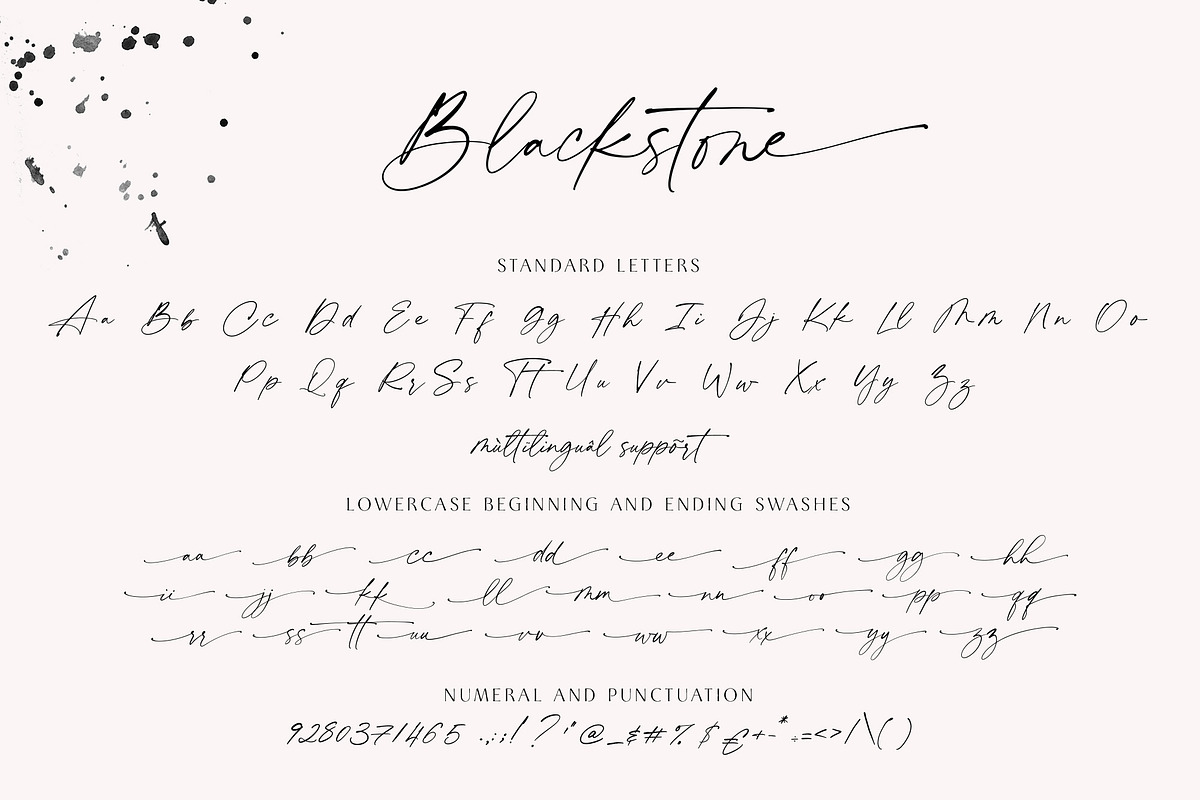 Blackstone
STANDARD LETTERS
Aa Bb Cc Dd Ee Ff Gg Hh Ii Jj Kk Ll Mm Nn Oo
Pp Qq Rr Ss Tt Uu Vv Ww Xx Yy Zz
mùltilinguâl suppõrt
LOWERCASE BEGINNING AND ENDING SWASHES
aa bb cc dd ee ff gg hh
ii jj kk ll mm nn oo pp qq
rr ss tt uu vv ww xx yy zz
NUMERAL AND PUNCTUATION
9280371465 .,:;!?'"@_&#%$€+-*÷=<>/|\()